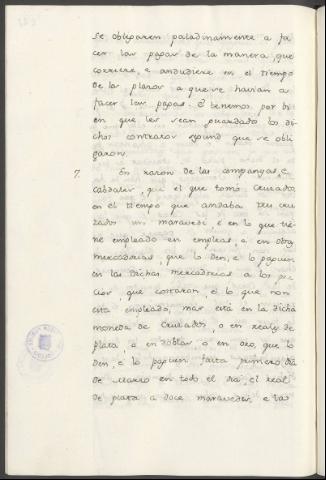 se obligaren paladinamente a fa
cer las pagas de la manera, que
corriere, e andudiere en el tiempo
de los plazos a que se havian a
facer las pagas. E tenemos por bi
en que les sean guardados los di
chos contratos segund que se obli
garon.
7. En razon de las companyas, e
cabdales, que el que tomó Cruzados
en el tiempo que andaba tres cru
zados un maravedi, e en lo que tie
ne empleado en empleas, o en otras
mercadorias, que lo den, e lo paguen
en las dichas mercadorias a los pre
cios, que costaron, e lo que non
está empleado, mas está en la dicha
moneda de Cruzados, o en reales de
plata, o en doblas, o en oro, que lo
den, e lo paguen fasta primero dia
de Marzo en todo el dia, el real
de plata a doce maravedis, e las